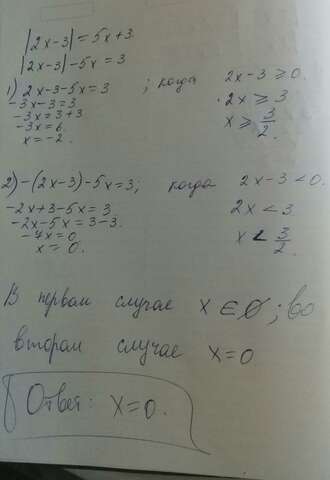 |2x-3|=5x+3.
|2x-3|-5x=3
1) 2x-3-5x=3 ; когда 2x-3≥0.
-3x-3=3 2x≥3
-3x=3+3 x≥3/2.
-3x=6.
x=-2.
2) -(2x-3)-5x=3; когда 2x-3<0.
-2x+3-5x=3 2x<3
-2x-5x=3-3. x<3/2.
-7x=0
x=0.
В первом случае x∈∅; во
втором случае x=0
Ответ: x=0.